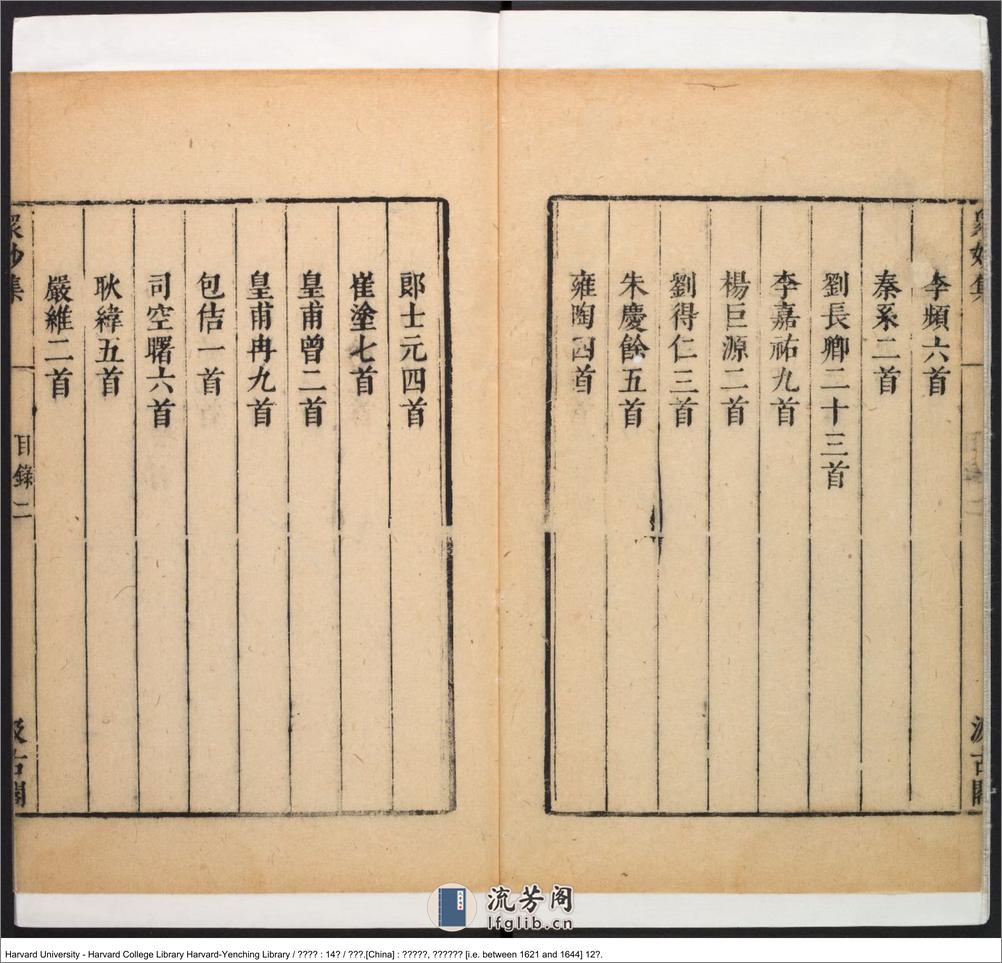 眾妙集
汲古閣
李頻六首
秦系二首
劉長卿二十三首
李嘉祐九首
楊巨源二首
劉得仁三首
朱慶餘五首
雍陶四首
郎士元四首
崔塗七首
皇甫曾二首
皇甫冉九首
包佶一首
司空曙六首
耿緯五首
嚴維二首
眾妙集
目錄二
汲古閣
流芳阁
lfglib.cn
Harvard University - Harvard College Library Harvard-Yenching Library / ???? : 14? / ???.[China] : ?????, ?????? [i.e. between 1621 and 1644] 12?.